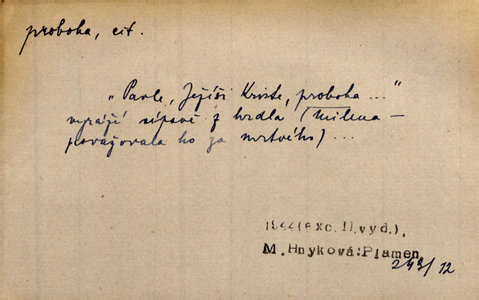 proboha, cit.
„Pavle, Ježíši Kriste, proboha ..."
vyráží sípavě z hrdla (Milena –
považovala ho za mrtvého) ...
1944(exc.II.vyd.),
M.Hnyková:Plamen
243/12